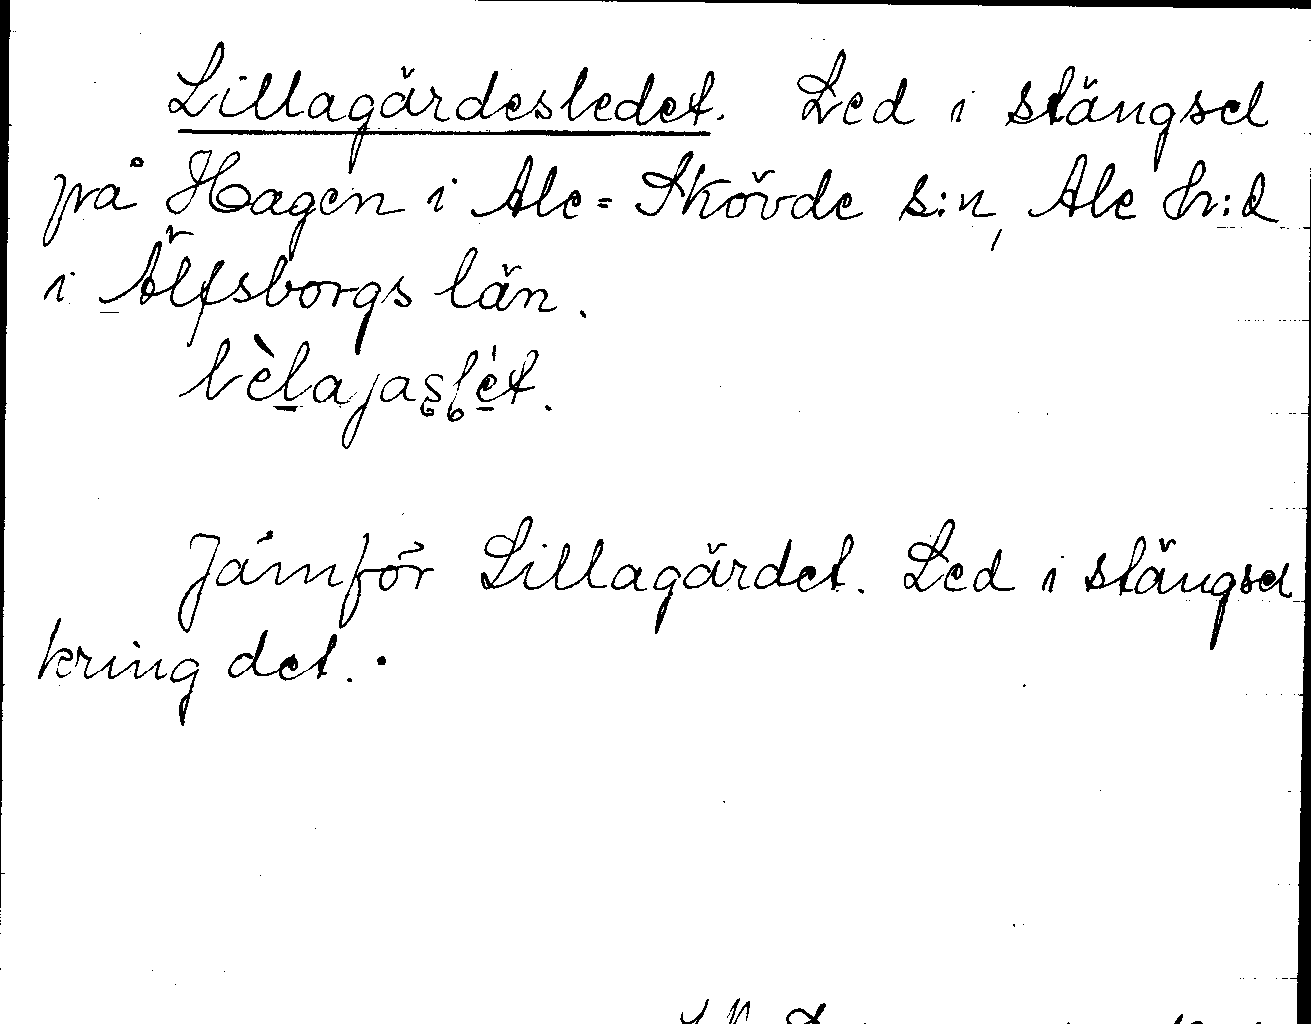 Lillagärdesledet. Led i stängsel
på Hagen i Ale-Skövde s:n, Ale hr:d
i Älfsborgs län.
Jämför Lillagärdet. Led i stängsel
kring det.